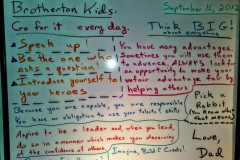 Brotherton Kids:
September 16, 2012
Go for it every day.
Think BIG!
about everything
Speak up!
Be the one who
asks a question!
Introduce yourself to
Your heroes
You have many advantages.
Sometimes you will use them
to advance. ALWAYS look for
an opportunity to make your
advantage for by
helping others
Because you are capable, you are responsible
You have an obligation to use your talents & skills
Aspire to be a leader and, when you lead,
do so in a manner which makes you deserving
of the confidence of others.
Imagine, Build & Create!
Pick a
Rabbit
(You know what
that means)
Love,
Dad